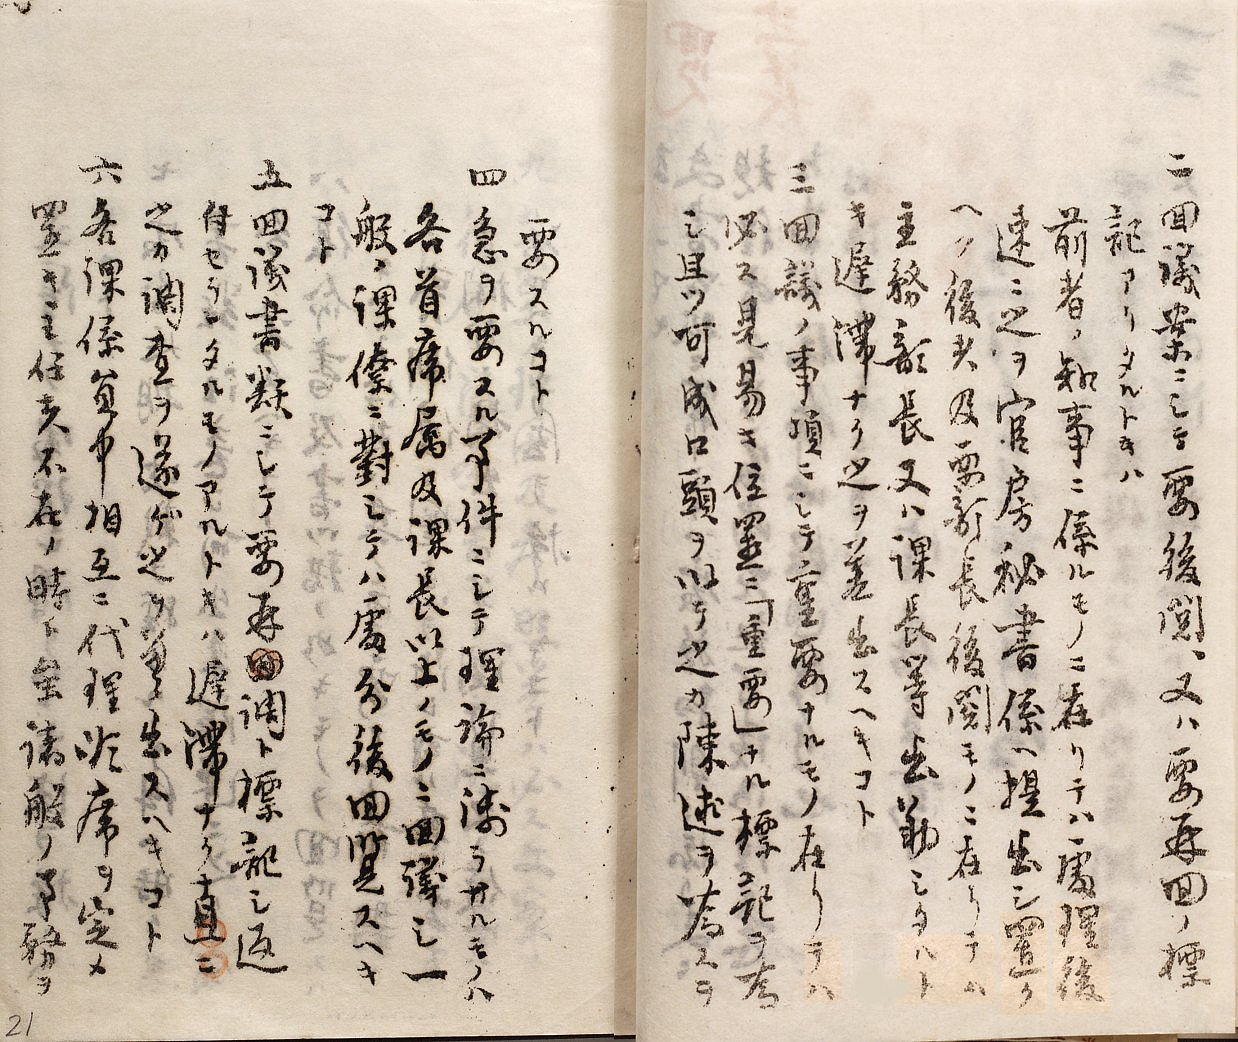 二回議案ニシテ要後閲、又ハ要再回ノ標
記アリタルトキハ
前者ノ知事ニ係ルモノニ在リテハ處理後
速ニ之ヲ官房秘書係ヘ提出シ置ク
ヘク後者及要部長後閲モノニ在リテハ
主務部長又ハ課長等出勤シタルト
キ遅滞ナク之ヲ差出スヘキコト
三回議ノ事項ニシテ重要ナルモノ在リテハ
必ス見易キ位置ニ「重要」ナル標記ヲ為
シ且ツ可成口頭ヲ以テ之カ陳述ヲ為スヲ
要スルコト
四急ヲ要スル事件ニシテ理論ニ渉ラサルモノハ
各首席属及課長以上ノモノニ回議シ一
般ノ課僚ニ對シテハ處分後回覧スヘキ
コト
五回議書類ニシテ要再回調ト標記シ返
付セラレタルモノアルトキハ遅滞ナク直ニ
之カ調査ヲ遂ゲ之ヲ差出スヘキコト
六各課係員中相互ニ代理次席ヲ定メ
置キ主任者不在ノ時ト雖諸般ノ事務ヲ
21